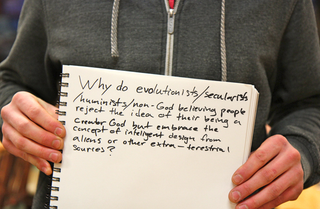 Why do evolutionists/secularists
/huminists/non-God believing people
reject the idea of their being a
creator God but embrace the
concept of inteligent design from
aliens or other extra-terrestrial
sources?